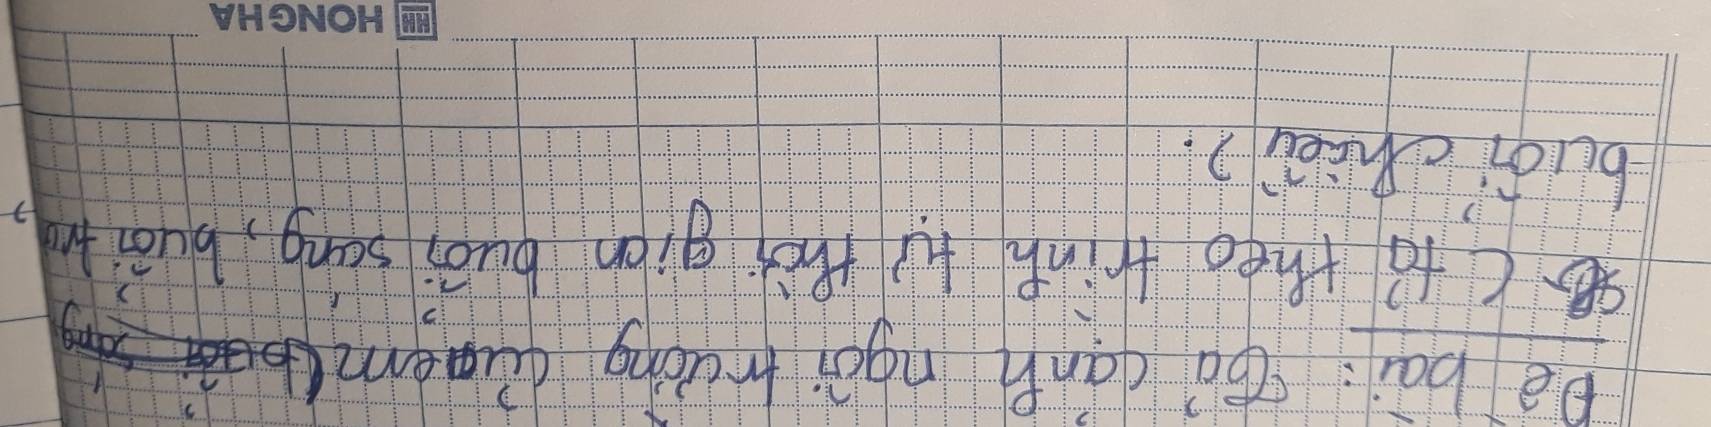 Đề bài: Tả cảnh ngôi trường của em
( tả theo trình tự thời gian buổi sáng, buổi trưa,
buổi chiều).
HONG HA